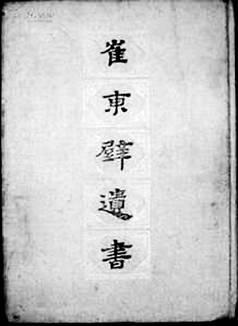 崔東壁遺書